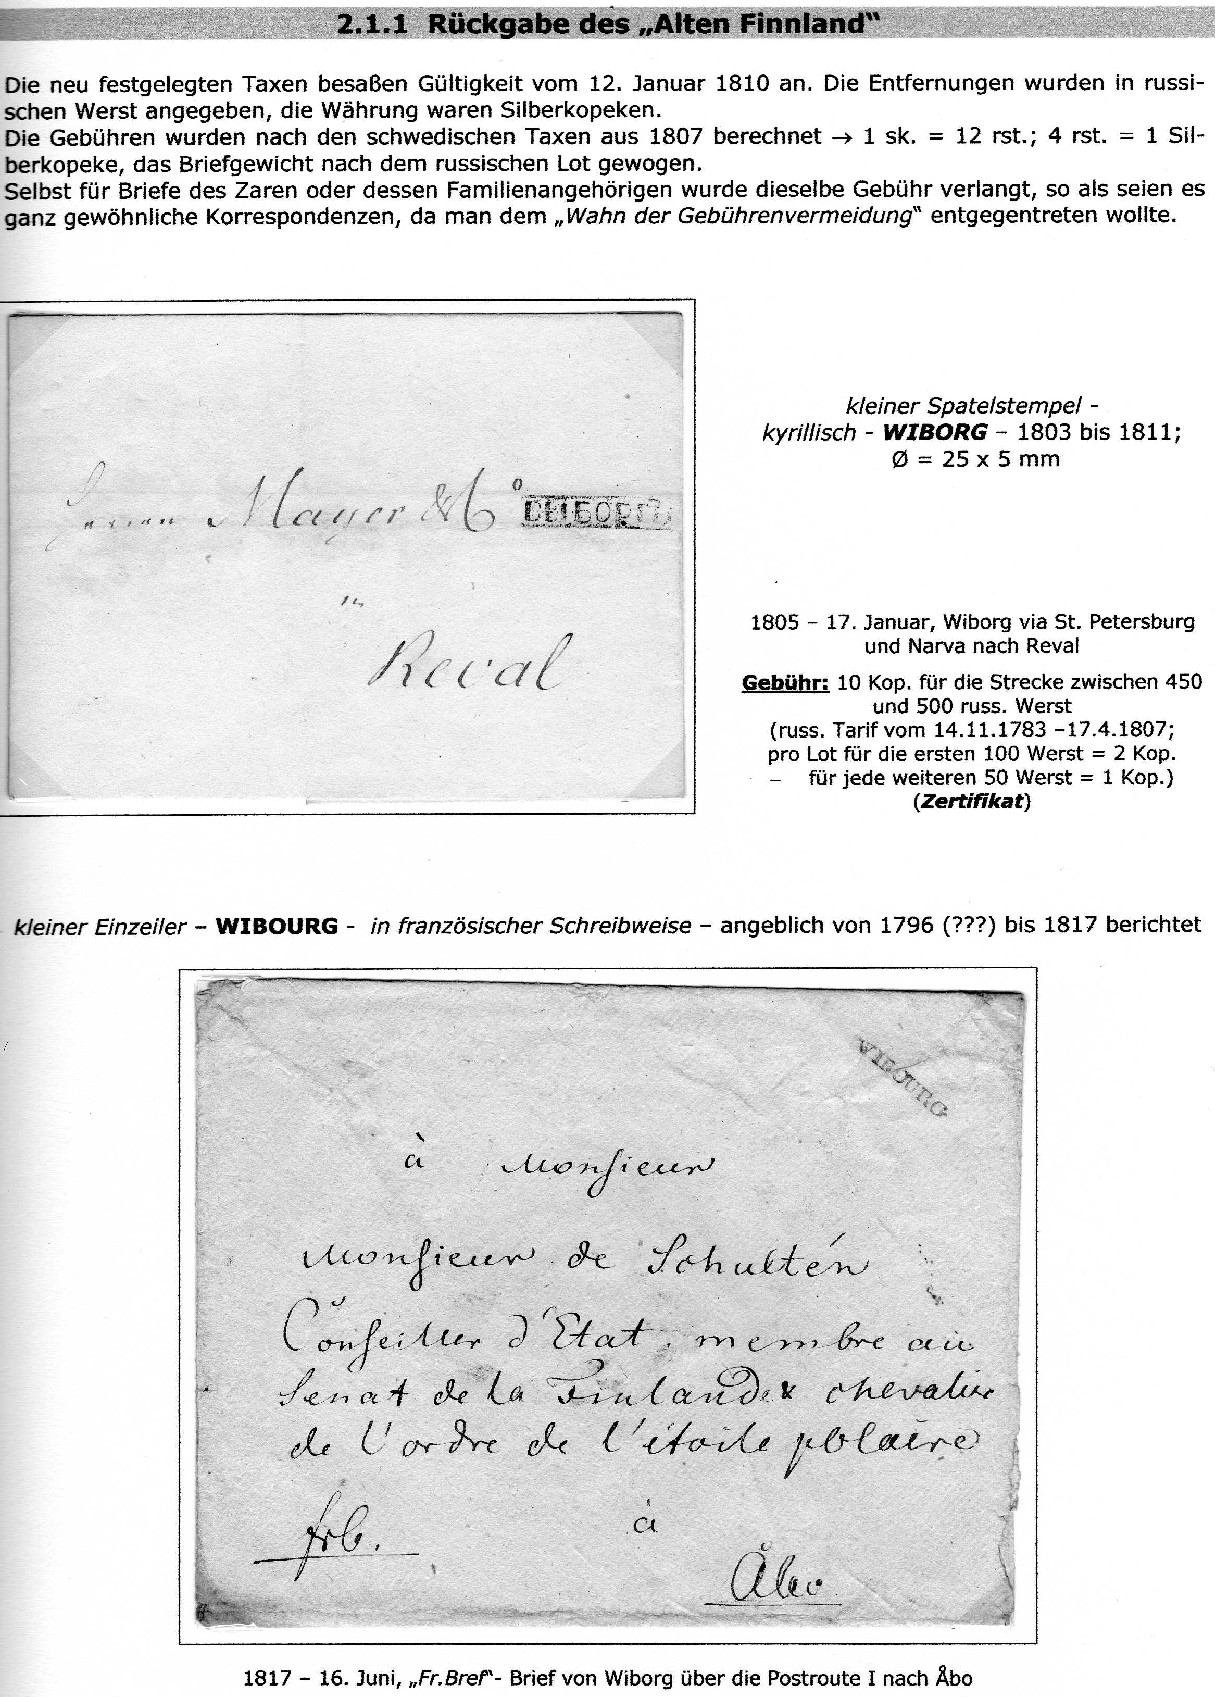 2.1.1 Rückgabe des „Alten Finnland“
Die neu festgelegten Taxen besaßen Gültigkeit vom 12. Januar 1810 an. Die Entfernungen wurden in russi-
schen Werst angegeben, die Währung waren Silberkopeken.
Die Gebühren wurden nach den schwedischen Taxen aus 1807 berechnet → 1 sk. = 12 rst.; 4 rst. = 1 Sil-
berkopeke, das Briefgewicht nach dem russischen Lot gewogen.
Selbst für Briefe des Zaren oder dessen Familienangehörigen wurde dieselbe Gebühr verlangt, so als seien es
ganz gewöhnliche Korrespondenzen, da man dem „Wahn der Gebührenvermeidung“ entgegentreten wollte.
kleiner Spatelstempel -
kyrillisch - WIBORG – 1803 bis 1811;
Ø = 25 x 5 mm
Mayer & Co
Reval
1805 – 17. Januar, Wiborg via St. Petersburg
und Narva nach Reval
Gebühr: 10 Kop. für die Strecke zwischen 450
und 500 russ. Werst
(russ. Tarif vom 14.11.1783 –17.4.1807;
pro Lot für die ersten 100 Werst = 2 Kop.
– für jede weiteren 50 Werst = 1 Kop.)
(Zertifikat)
kleiner Einzeiler – WIBOURG - in französischer Schreibweise – angeblich von 1796 (???) bis 1817 berichtet
WIBOURG
à Monsieur
Monsieur de Schultén
Conseiller d'Etat, membre au
Senat de la Finlande & chevalier
de l'ordre de l'étoile polaire
frb.
à
Åbo
1817 – 16. Juni, „Fr.Bref“- Brief von Wiborg über die Postroute I nach Åbo